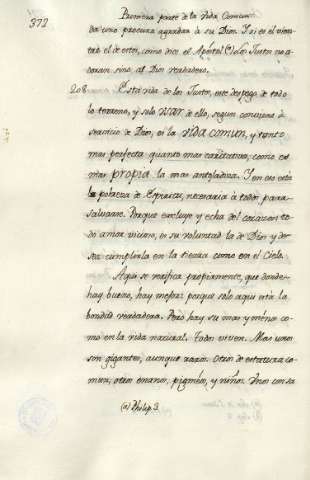 372
Primera parte de la Vida Comun
da como procura agradar à su Dios. Ydi es el vien-
tre el de estos, como dice el Apóstol. Los Justos no a-
doran sino, al Dios verdadero.
208. Esta vida de los Justos, este despego de todo
lo terreno, y solo usar de ello, segun conviene al
servicio de Dios, es la vida comun, y tanto
mas perfecta quanto mas caritativa, como es
mas propia la mas
la pobreza de Espiritu, necesaria à todos para
salvarse. Porque excluye y echa del corazon to-
do amor vicioso, es su voluntad la de Dios y de-
sea cumplirla en la tierra como en el Cielo.
Aqui se verifica propiamente, que donde
hay bueno, hay mejor porque solo aqui está la
bondad verdadera. Pero hay su mas y menos co-
mo en la vida natural. Todos viven. Mas unos
son gigantes, aunque raros. Otros de estatura co-
mun, otros enanos, pigmeos, y niños. Unos con sa
(a) Philip. 3.